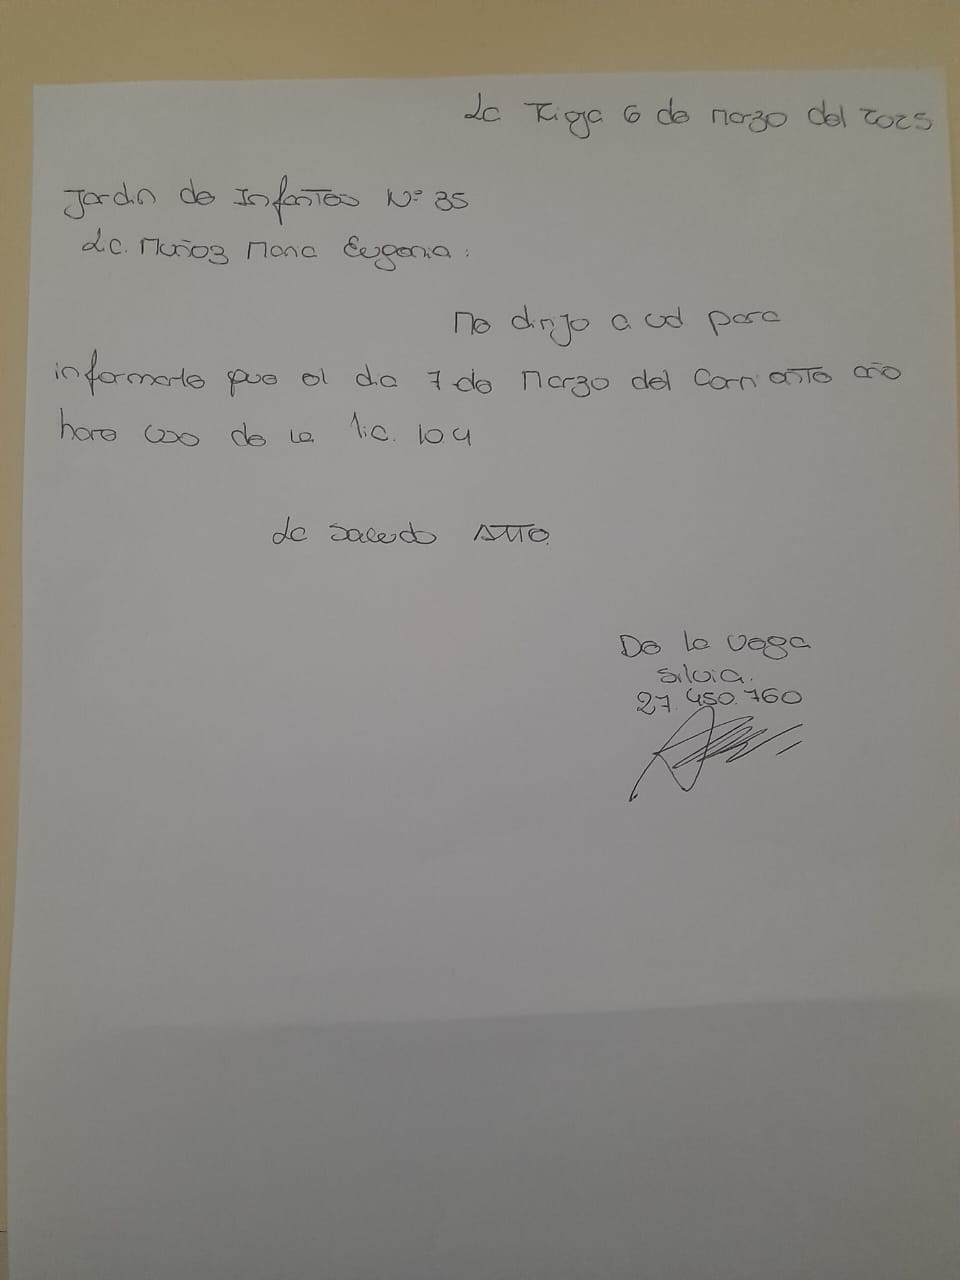 La Rioja 6 de Marzo del 2025
Jardin de Infantes Nº 35
Lic. Muñoz Maria Eugenia:
Me dirijo a ud para
informarle que el dia 7 de Marzo del Corriente año
hare uso de la lic. 10.4
La Saludo Atte.
De la Vega
Silvia.
27.450.760